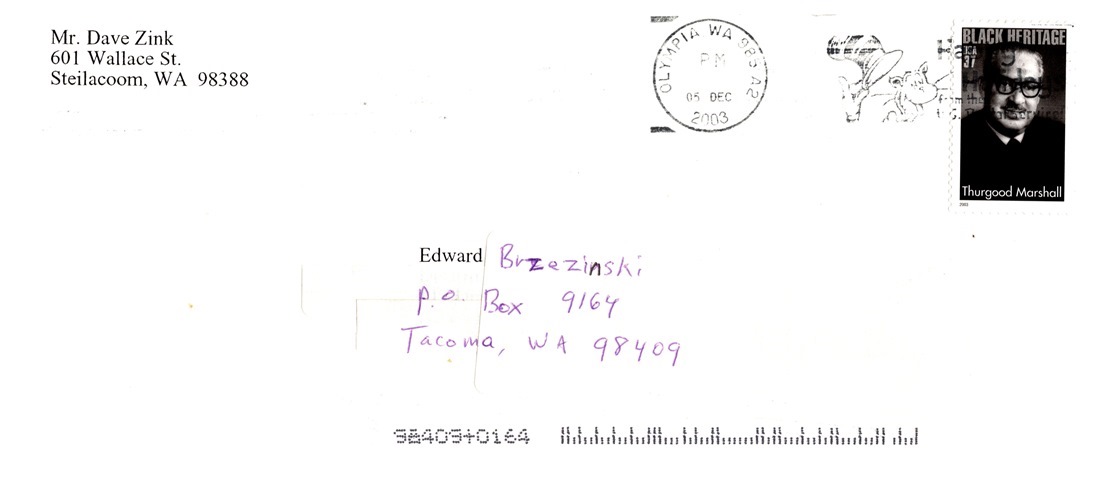 Mr. Dave Zink
601 Wallace St.
Steilacoom, WA 98388
OLYMPIA WA
PM
05 DEC
2003
BLACK HERITAGE
USA
37
from the
Thurgood Marshall
2003
Edward Brzezinski
P.O. Box 9164
Tacoma, WA 98409
98409+0164